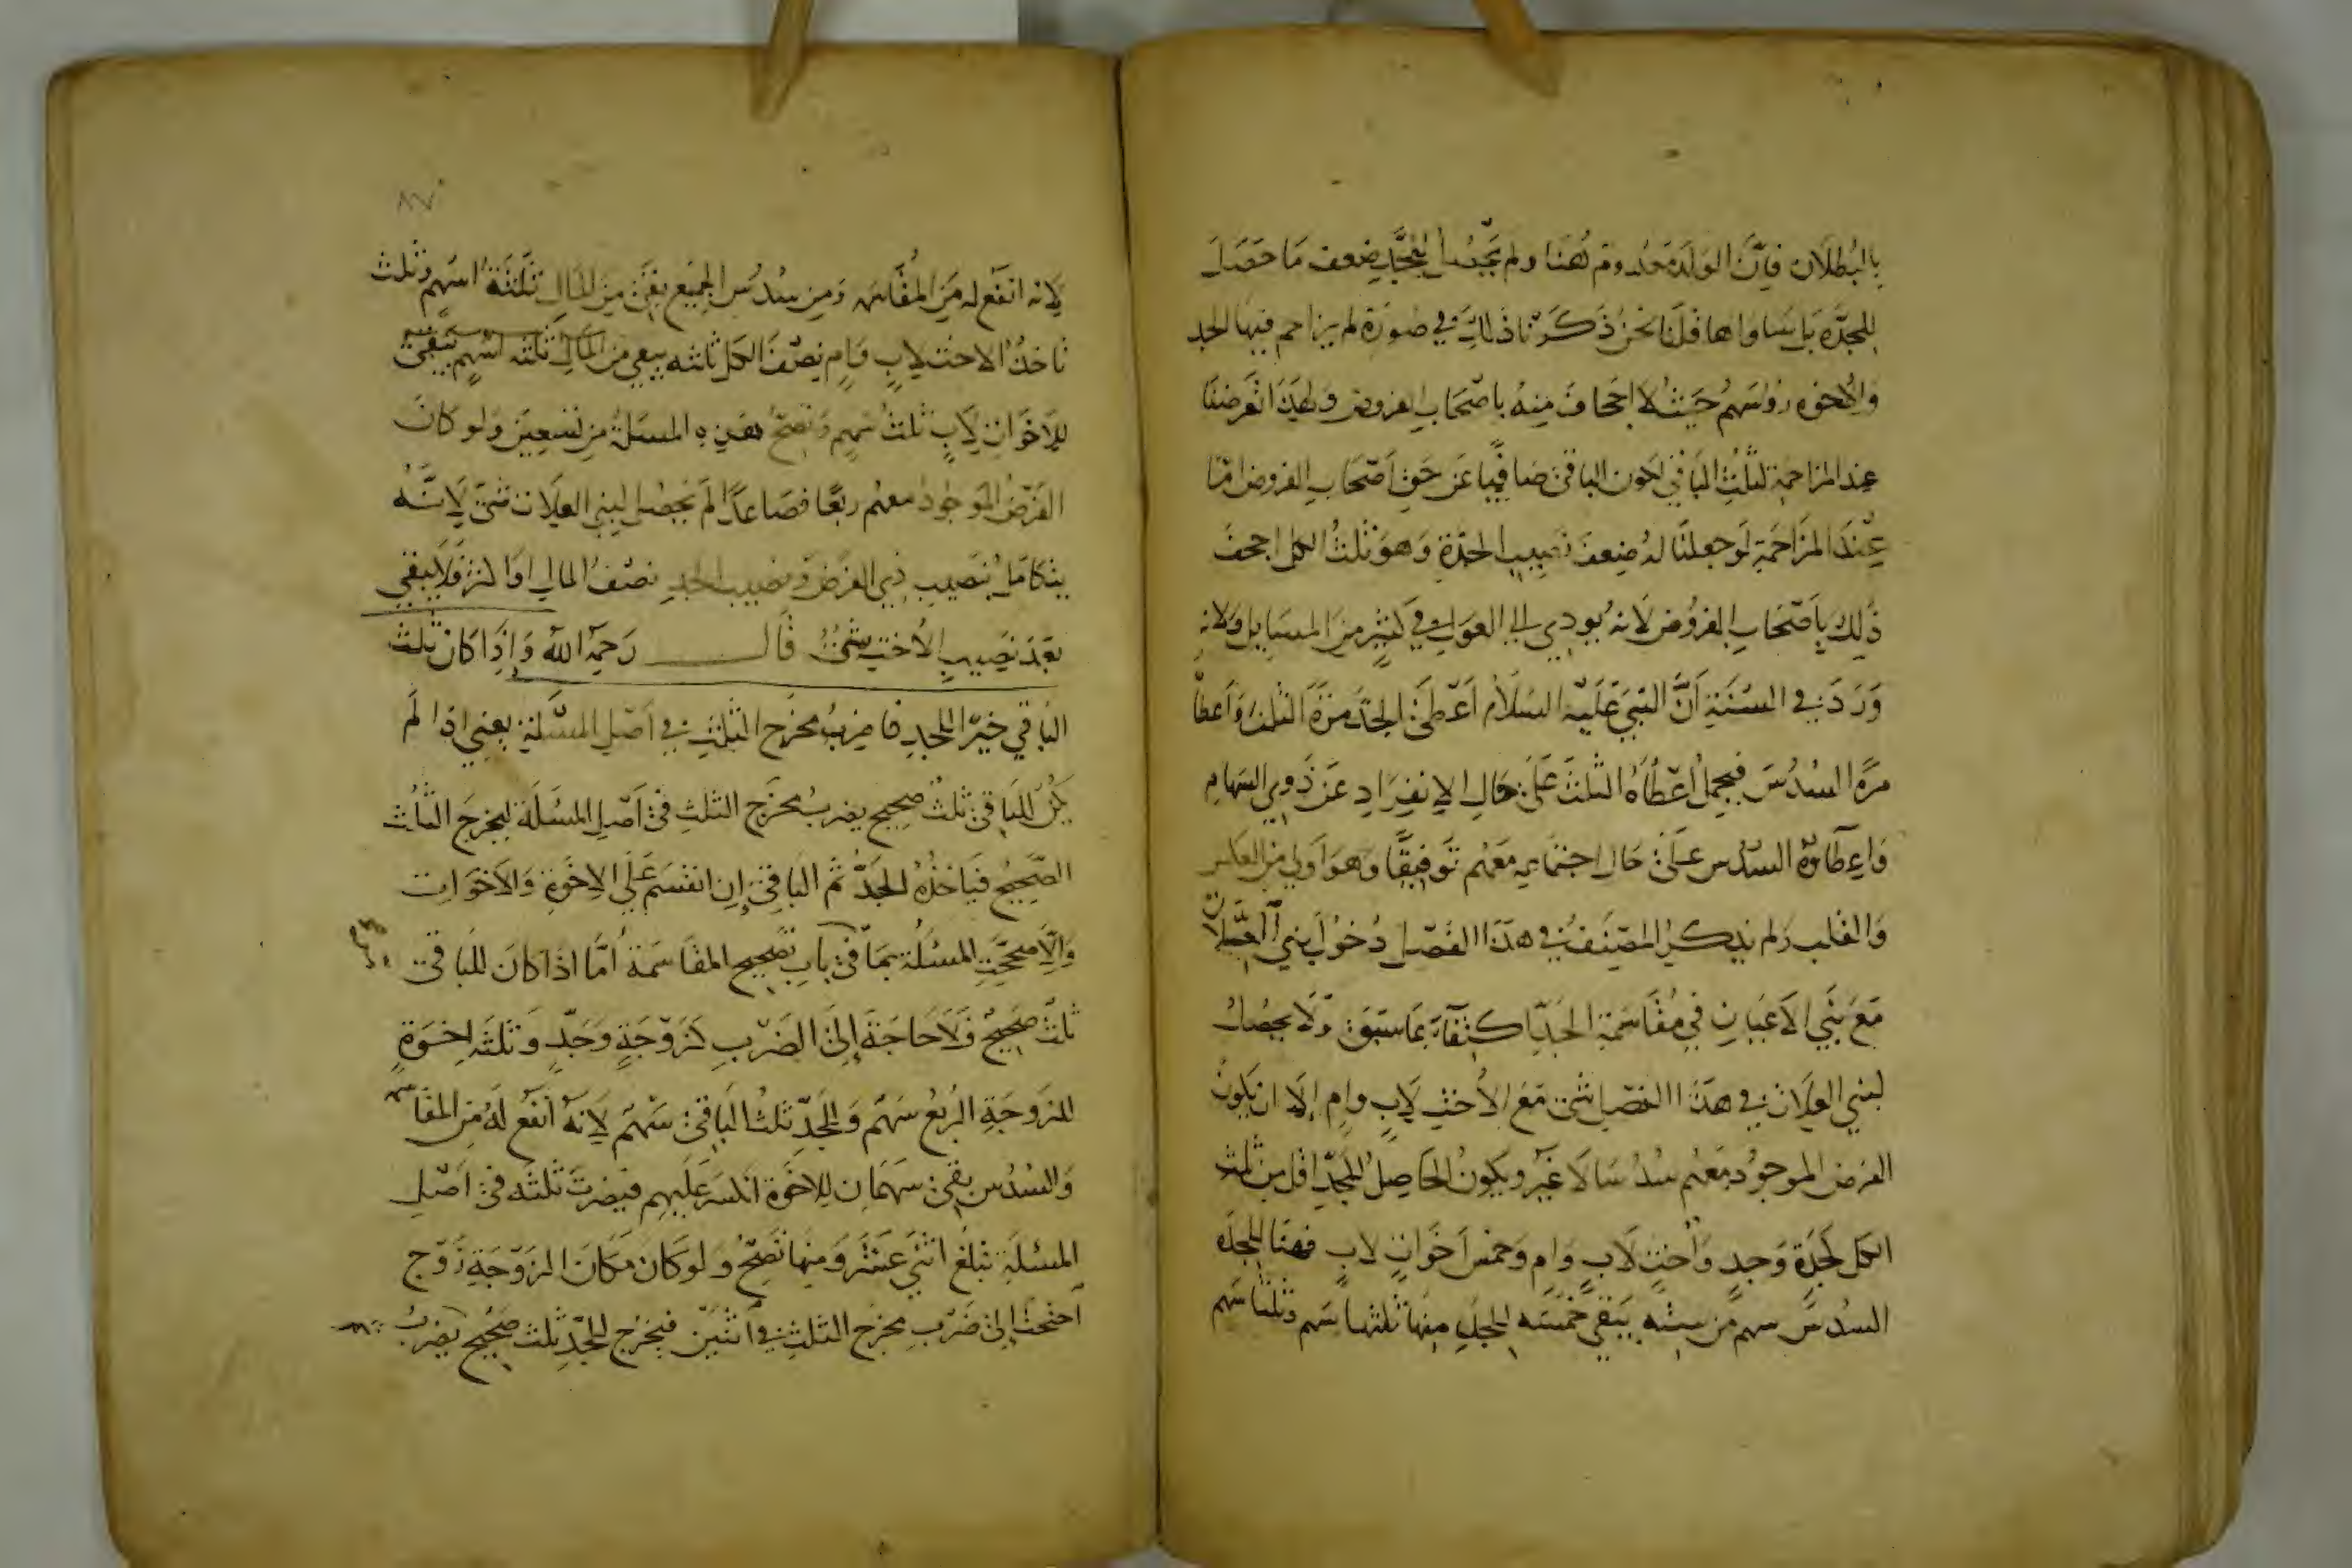 بالبطلان فإن الولد معدوم ههنا ولم يجعل للجد ضعف ما حصل
للجدة بل ساواها قلنا نحن ذكرنا ذلك في صورة لم يزاحم فيها الجد
والاخوة رؤسهم حيث لا اجحاف منه باصحاب الفروض ولهذا تعرضنا
عند المزاحمة لثلث الباقي لكون الباقي صافيا عن حق اصحاب الفروض امّا
عند المزاحمة لو جعلنا له ضعف نصيب الجدة وهو ثلث الكل اجحف
ذلك باصحاب الفروض لانه يودي الى العول في كثير من المسايل ولانه
ورد في السنة أن النبي عليه السلام أعطى الجد مرة الثلث وأعطا
مرة السدس فيحمل اعطاه الثلث على حال الانفراد عن ذوي السهام
واعطاؤه السدس على حال اجتماعه معهم توفيقا وهو اولى من العكس
والقلب ولم يذكر المصنف في هذا الفصل دخول بني العلات
مع بني الاعيان في مقاسمة الجد اكتفاء بما سبق ولا يحصل
لبني العلات في هذا الفصل شئ مع الأخت لاب وام إلا ان يكون
الفرض الموجود معهم سدسا لا غير ويكون الحاصل للجد اقل من ثلث
الكل كجدة وجد وأخت لاب وام وخمس اخوات لاب فهنا للجدة
السدس سهم من ستة يبقى خمسة للجد منها ثلثها سهم وثلثا سهم
٨٧
لانه انفع له من المقاسمة ومن سدس الجميع بقي من المال ثلثة اسهم وثلث
تاخذ الاخت لاب وام نصف الكل ثلثه يبقى من المال ثلثه اسهم تبقى
للاخوات لاب ثلث سهم وتصح هذه المسئلة من تسعين ولو كان
الفرض الموجود معهم ربعا فصاعدا لم يحصل لبني العلات شئ لانه
يتكامل بنصيب ذي الفرض ونصيب الجد نصف المال او اكثر فلا يبقى
بعد نصيب الاخت شئ قال رحمه الله وإذا كان ثلث
الباقي خيرا للجد فاضرب مخرج الثلث في أصل المسئلة يعني اذا لم
يكن للباقي ثلث صحيح يضرب مخرج الثلث في أصل المسئلة ليخرج الثلث
الصحيح فياخذه الجد ثم الباقي إن انقسم على الاخوة والاخوات
والا صححت المسئلة بما في باب تصحيح المقاسمة أما اذا كان للباقي
ثلث صحيح فلا حاجة إلى الضرب كزوجة وجد وثلثه اخوة
للزوجة الربع سهم وللجد ثلث الباقي سهم لانه انفع له من المقاسمة
والسدس بقي سهمان للاخوة انكسر عليهم فيضرب ثلثه في أصل
المسئلة تبلغ اثني عشر ومنها تصح ولو كان مكان الزوجة زوج
احتجت إلى ضرب مخرج الثلث في اثنين فيخرج للجد ثلث صحيح يضرب